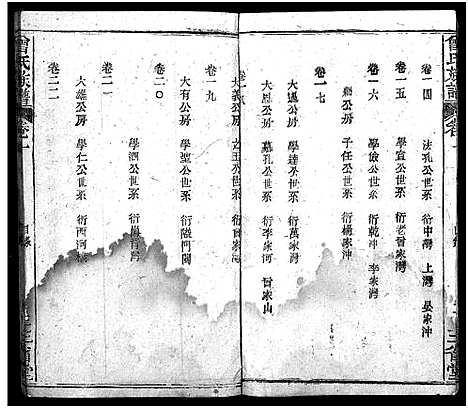 曾氏族譜 卷一
卷一四
法孔公世系 衍中灣 上灣 晏家沖
卷一五
學宜公世系 衍老曾家灣
卷一六
學儉公世系 衍乾沖 李家灣
公房 子任公世系 衍楊家沖
卷一七
大進公房 學達公世系 衍萬家灣
大恩公房 墓孔公世系 衍李家河 曾家山
卷一八
大義公房 世系 衍曾家
卷一九
大有公房 學聖公世系 衍陡門關
卷二〇
學泗公世系 衍
卷二一
大雄公房 學仁公世系 衍西河
卷二二
曾氏族譜 卷一 目錄
三省堂